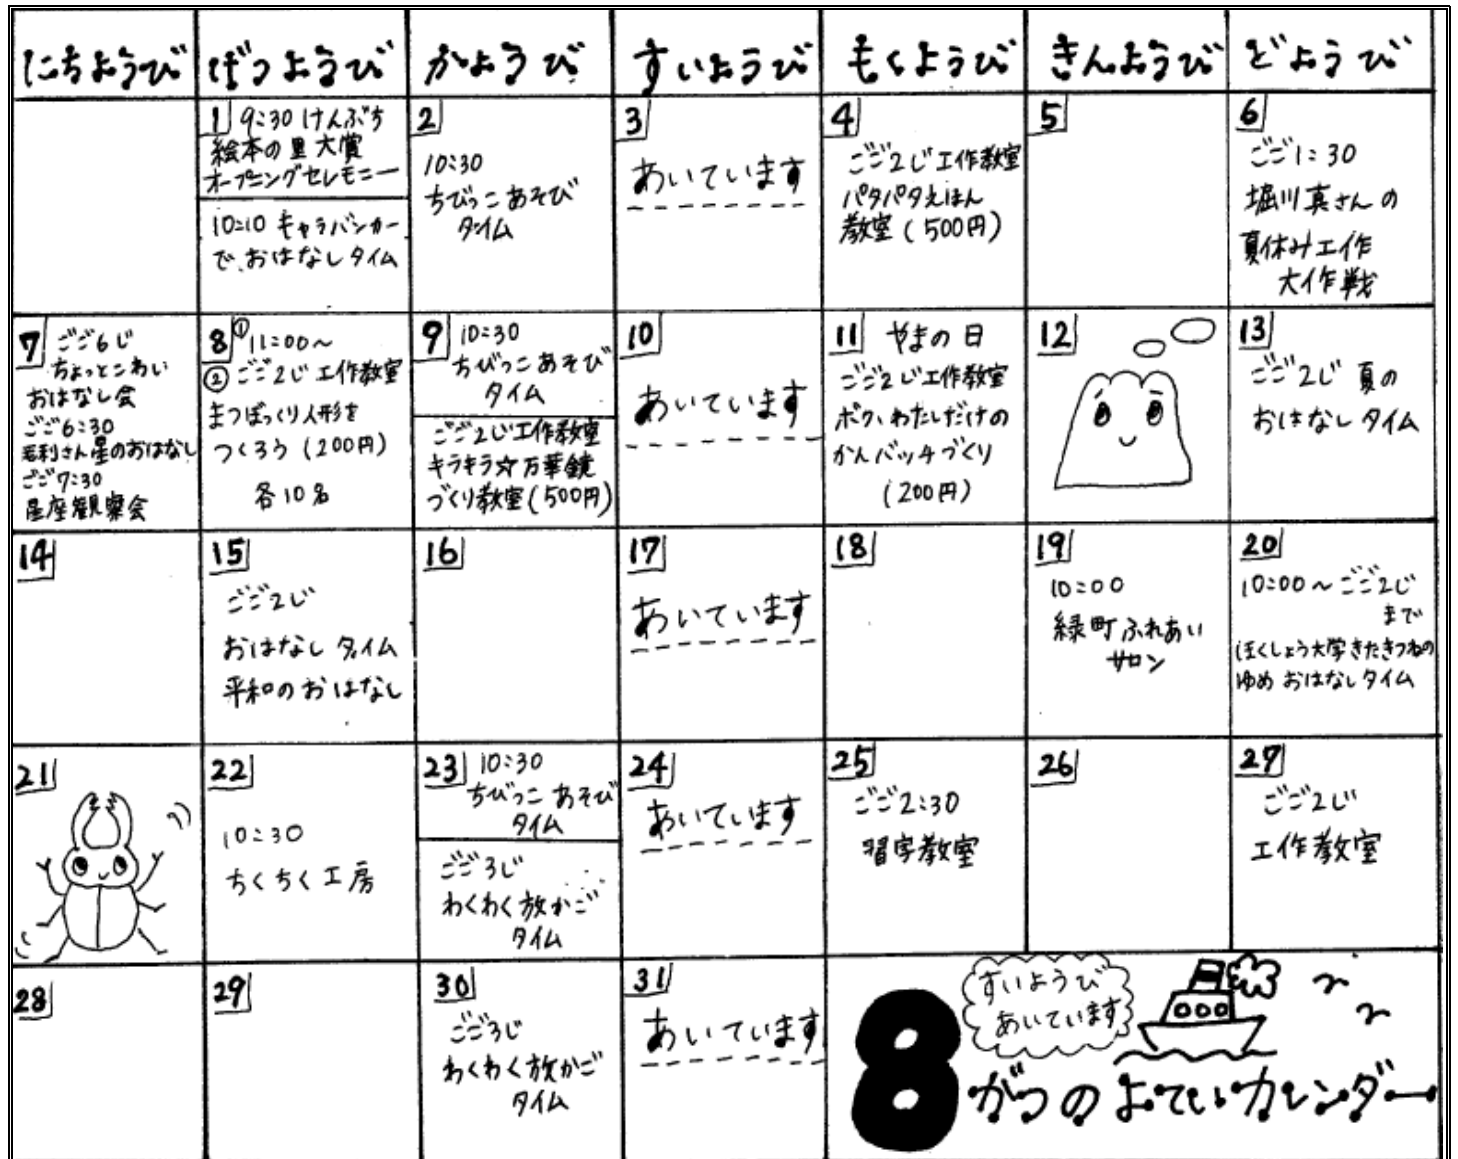 にちようび
げつようび
かようび
すいようび
もくようび
きんようび
どようび
1 9:30 けんぶち
絵本の里大賞
オープニングセレモニー
10:10 キャラバンカー
で、おはなしタイム
2
10:30
ちびっこあそび
タイム
3
あいています
4
ごご2じ工作教室
パタパタえほん
教室(500円)
5
6
ごご1:30
堀川真さんの
夏休み工作
大作戦
7 ごご6じ
ちょっとこわい
おはなし会
ごご6:30
さん星のおはなし
ごご7:30
星座観察会
8 ①11:00~
②ごご2じ工作教室
まつぼっくり人形を
つくろう(200円)
各10名
9 10:30
ちびっこあそび
タイム
ごご2じ工作教室
キラキラ☆万華鏡
づくり教室(500円)
10
あいています
11 やまの日
ごご2じ工作教室
ボク、わたしだけの
かんバッチづくり
(200円)
12
13
ごご2じ 夏の
おはなしタイム
14
15
ごご2じ
おはなしタイム
平和のおはなし
16
17
あいています
18
19
10:00
緑町ふれあい
サロン
20
10:00~ごご2じ
まで
ほくしょう大学きたきつねの
ゆめ おはなしタイム
21
22
10:30
ちくちく工房
23 10:30
ちびっこあそび
タイム
ごご3じ
わくわく放かご
タイム
24
あいています
25
ごご2:30
習字教室
26
27
ごご2じ
工作教室
28
29
30
ごご3じ
わくわく放かご
タイム
31
あいています
すいようび
あいています
8がつのよていカレンダー